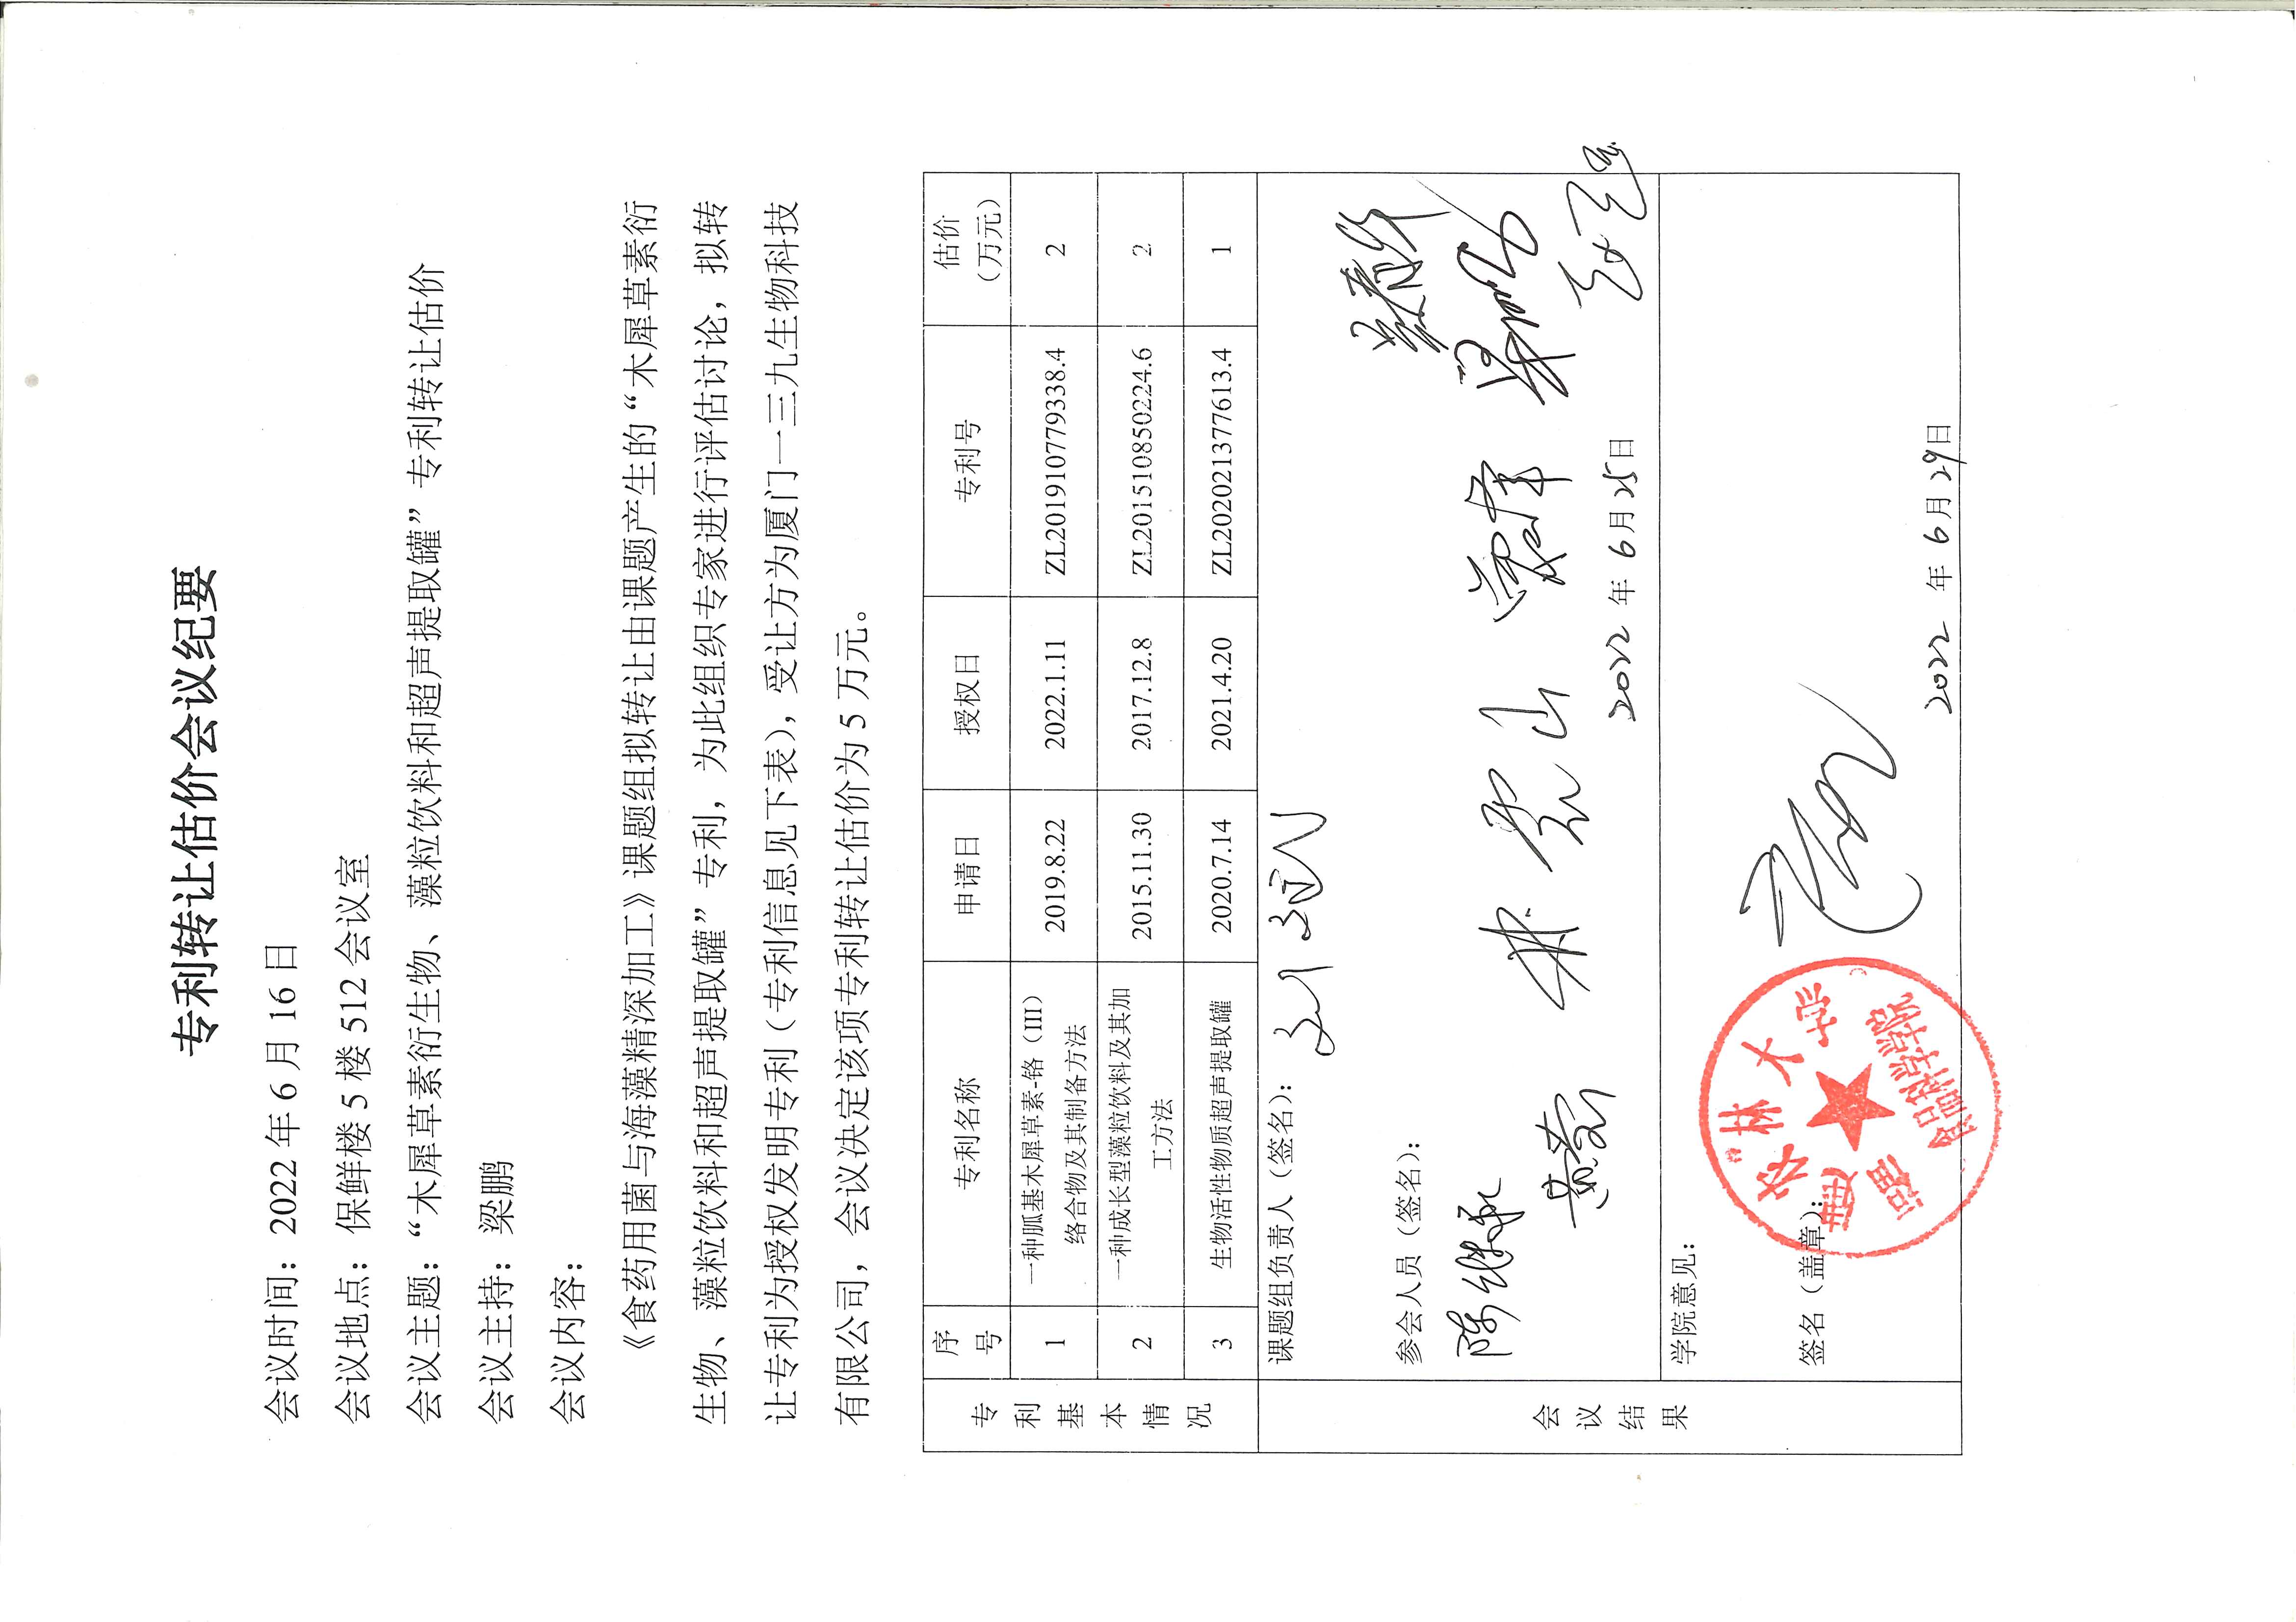 专利转让估价会议纪要
会议时间：2022 年 6 月 16 日
会议地点：保鲜楼 5 楼 512 会议室
会议主题：“木犀草素衍生物、藻粒饮料和超声提取罐”专利转让估价
会议主持：梁鹏
会议内容：
《食药用菌与海藻精深加工》课题组拟转让由课题产生的“木犀草素衍
生物、藻粒饮料和超声提取罐”专利，为此组织专家进行评估讨论，拟转
让专利为授权发明专利（专利信息见下表），受让方为厦门一三九生物科技
有限公司，会议决定该项专利转让估价为 5 万元。
专利基本情况
序号 专利名称 申请日 授权日 专利号 估价（万元）
1 一种胍基木犀草素-铬（III） 2019.8.22 2022.1.11 ZL201910779338.4 2
络合物及其制备方法
2 一种成长型藻粒饮料及其加 2015.11.30 2017.12.8 ZL201510850224.6 2
工方法
3 生物活性物质超声提取罐 2020.7.14 2021.4.20 ZL202021377613.4 1
会议结果
课题组负责人（签名）：
参会人员（签名）：
陈继承 黄 林 山 梁鹏
2022 年 6 月 25 日
学院意见：
签名（盖章）：
福建农林大学
食品科学学院
2022 年 6 月 29 日